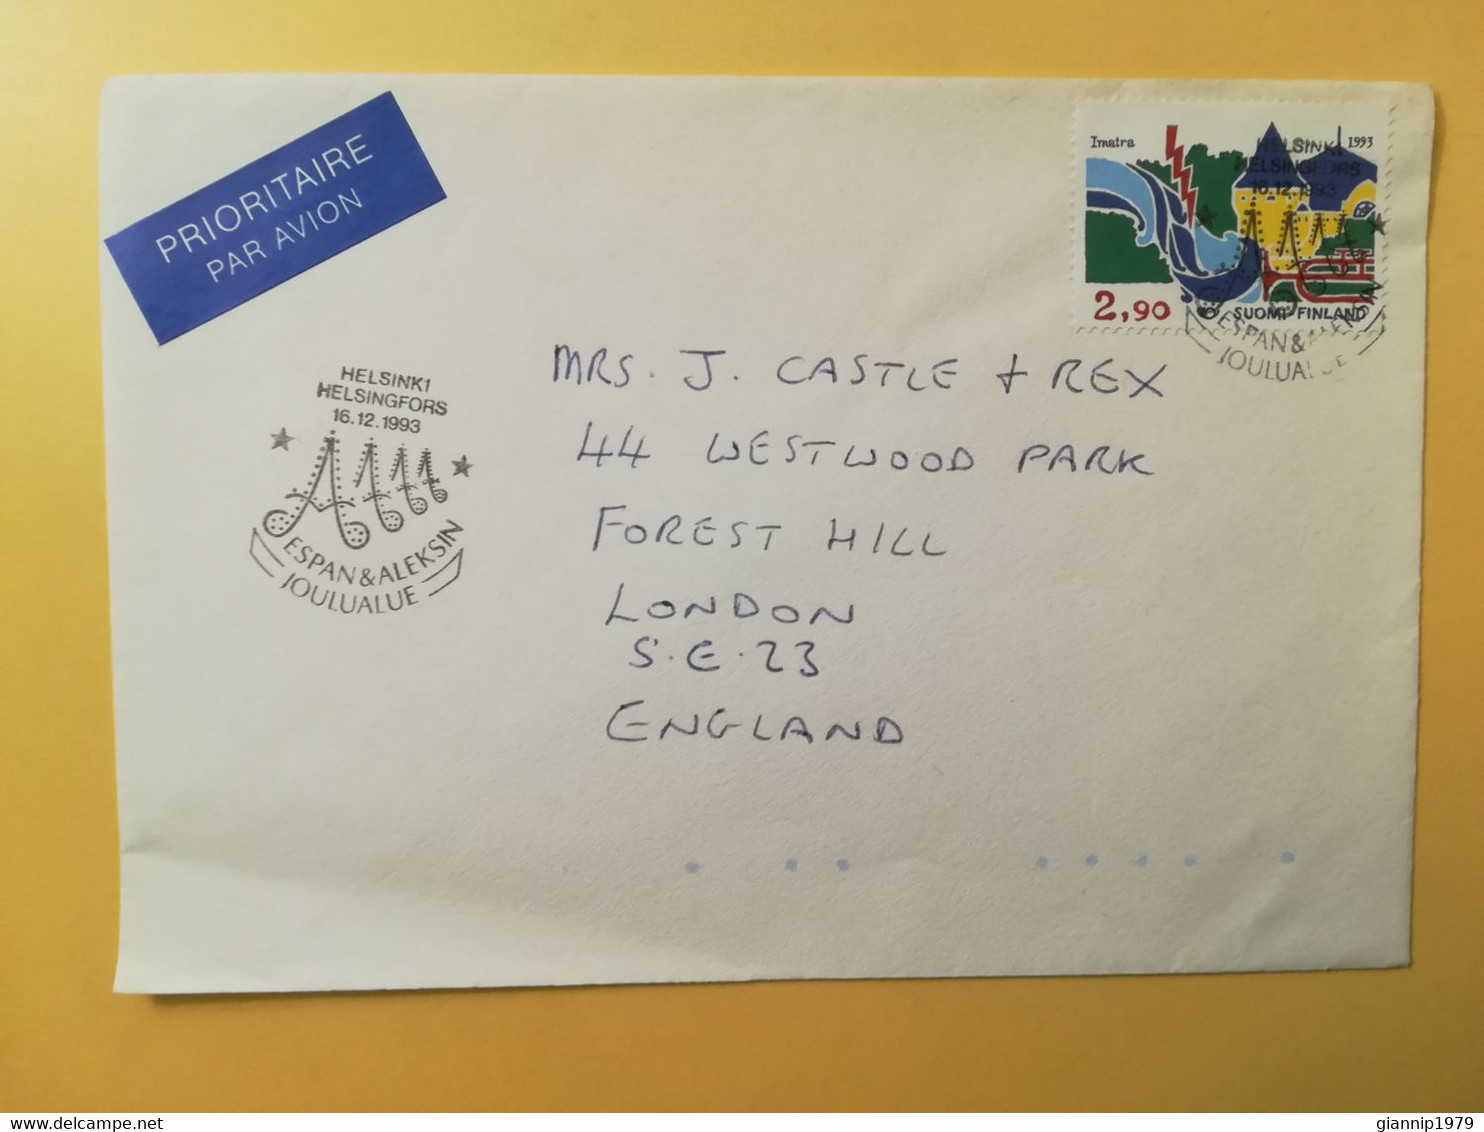 PRIORITAIRE
PAR AVION
Imatra
1993
HELSINKI
HELSINGFORS
16.12.1993
2,90
SUOMI-FINLAND
ESPAN & ALEKSIN
JOULUALUE
HELSINKI
HELSINGFORS
16.12.1993
ESPAN & ALEKSIN
JOULUALUE
MRS. J. CASTLE + REX
44 WESTWOOD PARK
FOREST HILL
LONDON
S.E.23
ENGLAND
giannip1979